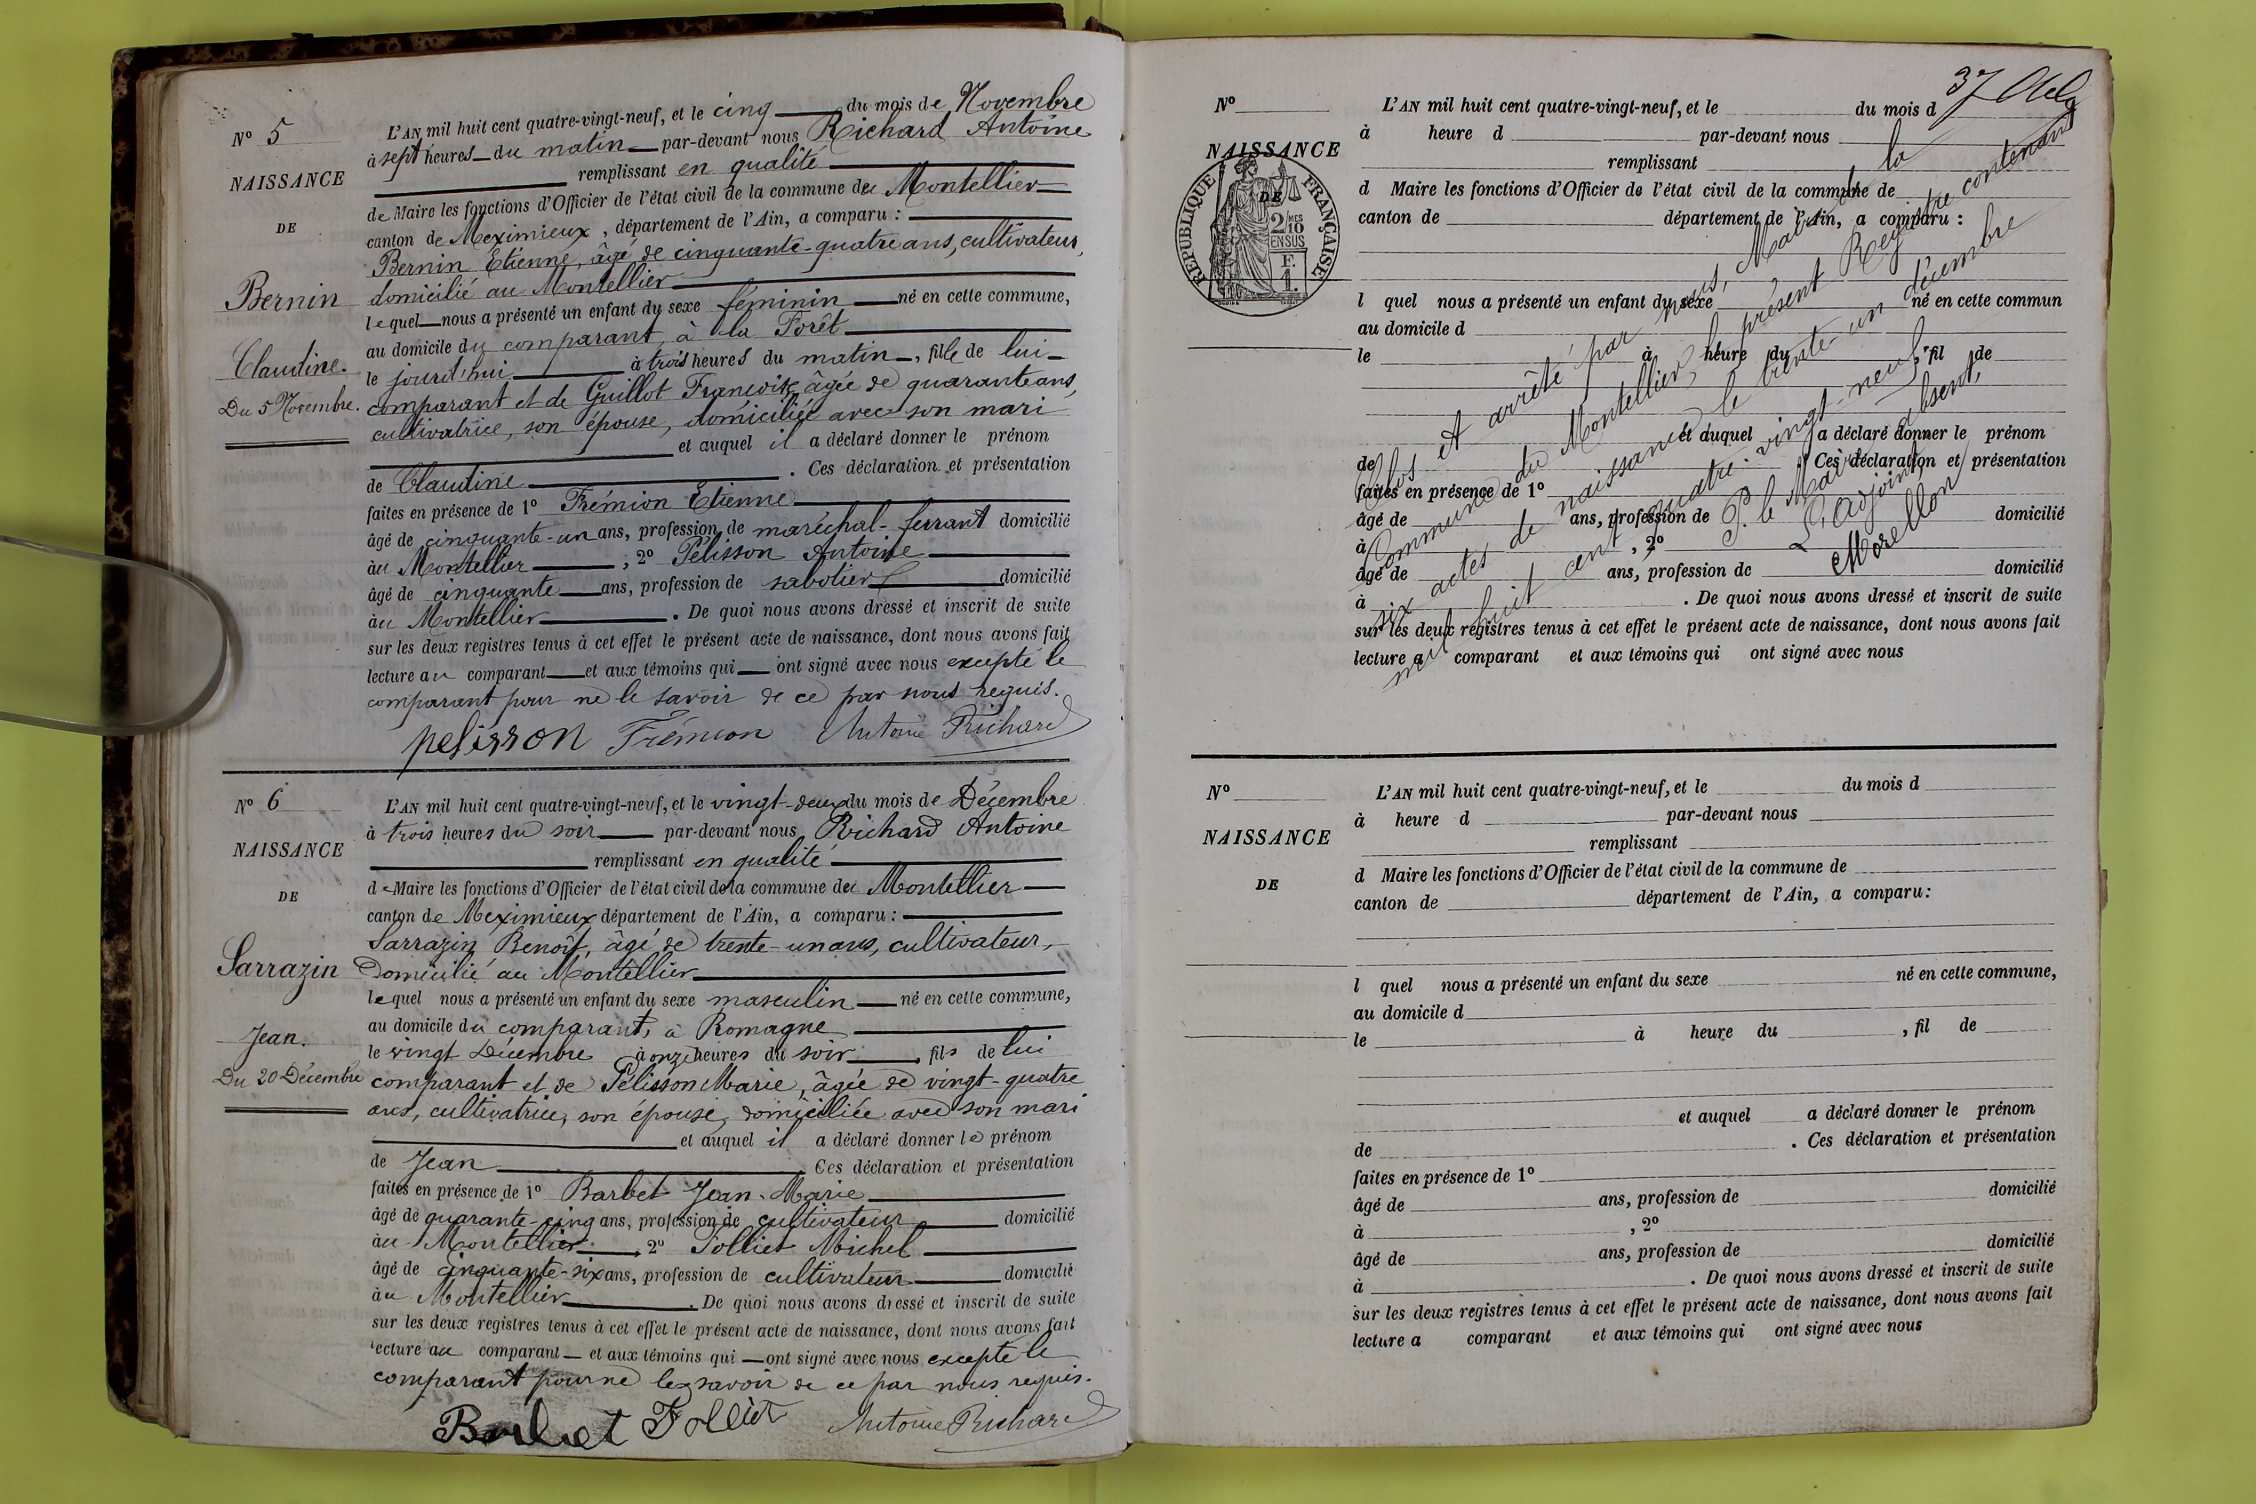 N° 5
NAISSANCE
DE
Bernin
Claudine.
Du 5 Novembre.
L'AN mil huit cent quatre-vingt-neuf, et le cinq du mois de Novembre
à sept heures du matin par-devant nous Richard Antoine
remplissant en qualité
de Maire les fonctions d'Officier de l'état civil de la commune du Montellier
canton de Meximieux, département de l'Ain, a comparu :
Bernin Etienne, âgé de cinquante-quatre ans, cultivateur,
domicilié au Montellier
lequel nous a présenté un enfant du sexe féminin né en cette commune,
au domicile du comparant, à la Forêt
le jourd'hui à trois heures du matin, fille de lui
comparant et de Guillot Françoise, âgée de quarante ans,
cultivatrice, son épouse, domiciliée avec son mari
et auquel il a déclaré donner le prénom
de Claudine. Ces déclaration et présentation
faites en présence de 1° Frémion Etienne
âgé de cinquante-un ans, profession de maréchal-ferrant domicilié
àu Montellier ; 2° Pélisson Antoine
âgé de cinquante ans, profession de sabotier domicilié
àu Montellier. De quoi nous avons dressé et inscrit de suite
sur les deux registres tenus à cet effet le présent acte de naissance, dont nous avons fait
lecture au comparant et aux témoins qui ont signé avec nous excepté le
comparant pour ne le savoir de ce par nous requis.
pelisson Frémion Antoine Richard
N° 6
NAISSANCE
DE
Sarrazin
Jean.
Du 20 Décembre
L'AN mil huit cent quatre-vingt-neuf, et le vingt-deux du mois de Décembre
à trois heures du soir par-devant nous Richard Antoine
remplissant en qualité
de Maire les fonctions d'Officier de l'état civil de la commune du Montellier
canton de Meximieux département de l'Ain, a comparu :
Sarrazin Benoît, âgé de trente-un ans, cultivateur,
domicilié au Montellier
lequel nous a présenté un enfant du sexe masculin né en cette commune,
au domicile du comparant, à Romagne
le vingt Décembre à onze heures du soir, fils de lui
comparant et de Pélisson Marie, âgée de vingt-quatre
ans, cultivatrice, son épouse, domiciliée avec son mari
et auquel il a déclaré donner le prénom
de Jean Ces déclaration et présentation
faites en présence de 1° Barbet Jean-Marie
âgé de quarante-cinq ans, profession de cultivateur domicilié
àu Montellier, 2° Folliet Michel
âgé de cinquante-six ans, profession de cultivateur domicilié
àu Montellier. De quoi nous avons dressé et inscrit de suite
sur les deux registres tenus à cet effet le présent acte de naissance, dont nous avons fait
lecture au comparant et aux témoins qui ont signé avec nous excepté le
comparant pour ne le savoir de ce par nous requis.
Barbet Folliet Antoine Richard
37
N°
NAISSANCE
DE
REPUBLIQUE FRANÇAISE
2/10 EN SUS
F. 1.
L'AN mil huit cent quatre-vingt-neuf, et le du mois d
à heure d par-devant nous
remplissant
d Maire les fonctions d'Officier de l'état civil de la commune de
canton de département de l'Ain, a comparu :
l quel nous a présenté un enfant du sexe né en cette commun
au domicile d
le à heure du , fil de
et auquel a déclaré donner le prénom
de . Ces déclaration et présentation
faites en présence de 1°
âgé de ans, profession de domicilié
à , 2°
âgé de ans, profession de domicilié
à . De quoi nous avons dressé et inscrit de suite
sur les deux registres tenus à cet effet le présent acte de naissance, dont nous avons fait
lecture a comparant et aux témoins qui ont signé avec nous
Clos et arrêté par nous, Maire de la
Commune du Montellier, le présent Registre contenant
six actes de naissance le trente-un décembre
mil huit cent quatre-vingt-neuf.
P. le Maire absent,
L'adjoint
Morellon
N°
NAISSANCE
DE
L'AN mil huit cent quatre-vingt-neuf, et le du mois d
à heure d par-devant nous
remplissant
d Maire les fonctions d'Officier de l'état civil de la commune de
canton de département de l'Ain, a comparu :
l quel nous a présenté un enfant du sexe né en cette commune,
au domicile d
le à heure du , fil de
et auquel a déclaré donner le prénom
de . Ces déclaration et présentation
faites en présence de 1°
âgé de ans, profession de domicilié
à , 2°
âgé de ans, profession de domicilié
à . De quoi nous avons dressé et inscrit de suite
sur les deux registres tenus à cet effet le présent acte de naissance, dont nous avons fait
lecture a comparant et aux témoins qui ont signé avec nous